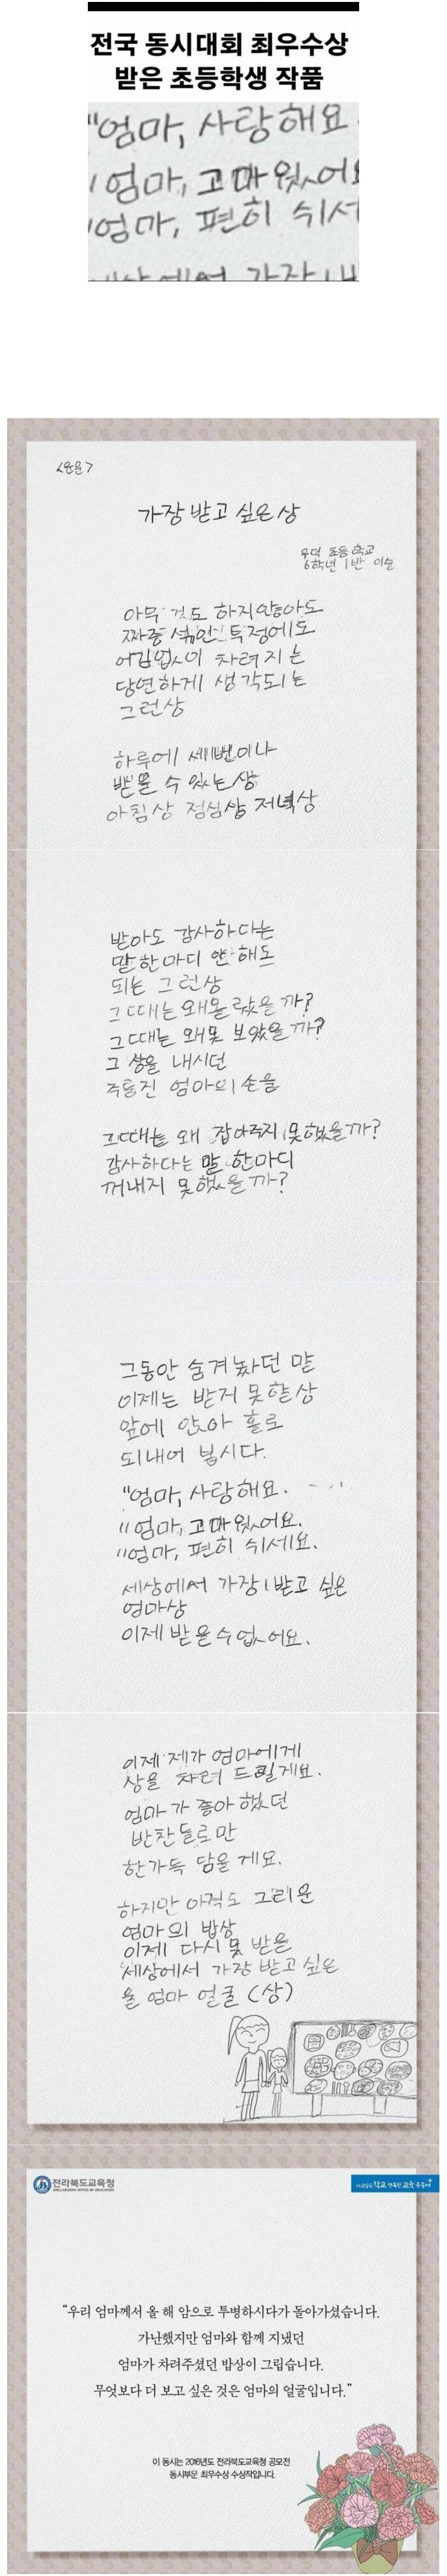 전국 동시대회 최우수상
받은 초등학생 작품
"엄마, 사랑해요.
"엄마, 고마웠어요
"엄마, 편히 쉬세
<운문>
가장 받고 싶은 상
우덕 초등학교
6학년 1반 이슬
아무 것도 하지 않아도
짜증 섞인 투정에도
어김없이 차려지는
당연하게 생각되는
그런상
하루에 세번이나
받을 수 있는상
아침상 점심상 저녁상
받아도 감사하다는
말 한마디 안 해도
되는 그런상
그때는 왜몰랐을까?
그때는 왜못 보았을까?
그 상을 내시던
주름진 엄마의 손을
그때는 왜 잡아주지 못했을까?
감사하다는 말 한마디
꺼내지 못했을까?
그동안 숨겨놨던 말
이제는 받지 못할상
앞에 앉아 홀로
되내어 봅시다.
"엄마, 사랑해요. ....
"엄마, 고마웠어요.
"엄마, 편히 쉬세요.
세상에서 가장 받고 싶은
엄마상
이제 받을수없어요.
이제 제가 엄마에게
상을 차려 드릴게요.
엄마가 좋아했던
반찬들로만
한가득 담을게요.
하지만 아직도 그리운
엄마의 밥상
이제 다시 못 받을
세상에서 가장 받고 싶은
울 엄마 얼굴 (상)
전라북도교육청
"우리 엄마께서 올 해 암으로 투병하시다가 돌아가셨습니다.
가난했지만 엄마와 함께 지냈던
엄마가 차려주셨던 밥상이 그립습니다.
무엇보다 더 보고 싶은 것은 엄마의 얼굴입니다."
이 동시는 2016년도 전라북도교육청 공모전
동시부문 최우수상 수상작입니다.